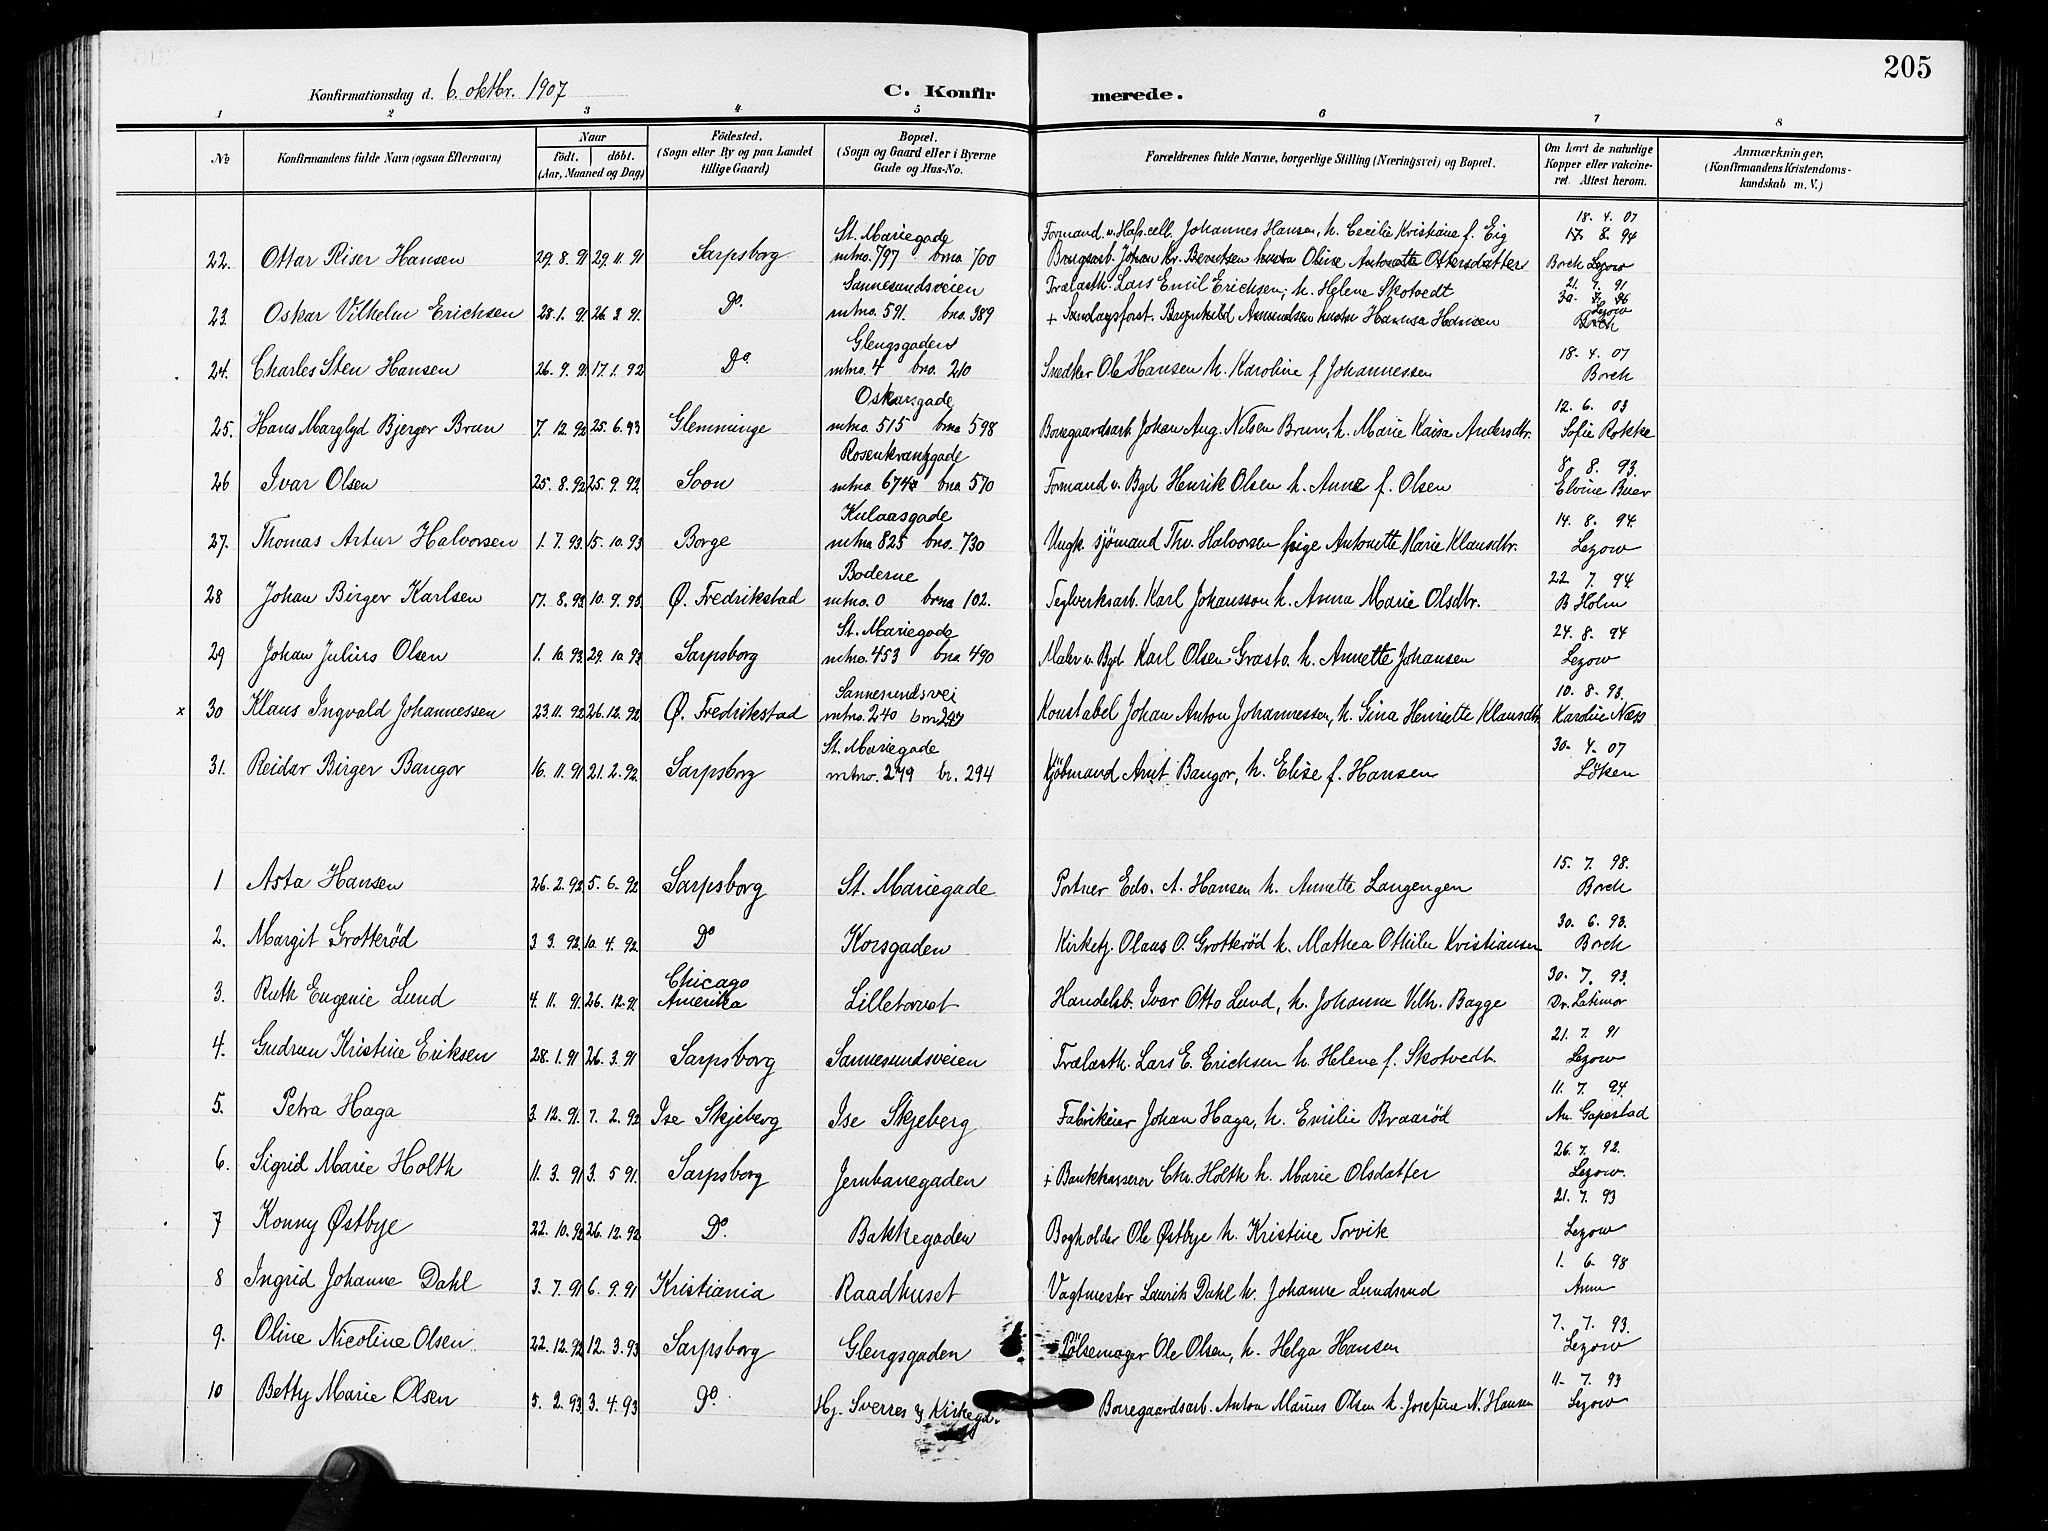 205
Konfirmationsdag d. 6. oktbr. 1907 C. Konfirmerede.
1 2 3 4 5 6 7 8
No Konfirmandens fulde Navn (ogsaa Efternavn) Naar født. døbt. (Aar, Maaned og Dag) Födested. (Sogn eller By og paa Landet tillige Gaard) Bopæl. (Sogn og Gaard eller i Byerne Gade og Hus-No. Forældrenes fulde Navne, borgerlige Stilling (Næringsvei) og Bopæl. Om havt de naturlige Kopper eller vakcineret. Attest herom. Anmærkninger. (Konfirmandens Kristendomskundskab m. V.)
St. Mariegade Formand v. Hafs. cell. Johannes Hansen, h. Cecilie Kristiane f. Eig 18. 4. 07
22. Ottar Riser Hansen 29. 8. 91 29. 11. 91 Sarpsborg mtno. 797 bno 700 Johan Kr. Berntsen hustru Oline Antonette Ottersdatter Borch Lezow
Sannesundsveien Trælasth. Lars Emil Erichsen, h. Helene Skotvedt
23. Oskar Vilhelm Erichsen 28. 1. 91. 26. 3 91. Do. mtno. 591. bno. 989 +
Glengsgaden 18. 4. 07
24. Charles Sten Hansen 26. 9. 91 17. 1. 92 Do. mtno. 4 bno. 210 Snedker Ole Hansen h. Karoline f Johannessen Borch
Oskarsgade 12. 6. 03
25. Hans Marglyd Bjerger Brun 7. 12. 92 25. 6. 93 Glemminge mtno. 515 bno 598 Borregaardsarb. Johan Aug. Nilsen Brun, h. Marie Kaisa Andersdtr. Sofie Rokke
Rosenkrantzgade 8. 8. 93.
26 Ivar Olsen 25. 8. 92 25. 9. 92 Soon mtno. 674 bno. 570 Formand v. Bgd Henrik Olsen h. Anne f. Olsen Elvine Buer
Kulaasgade 14. 8. 94.
27. Thomas Artur Halvorsen 1. 7. 93 15. 10. 93 Borge mtno 825 bno. 730 Ungk. sjömand Thv. Halvorsen pige Antonette Marie Klausdtr. Lezow
Boderne 22 7. 94
28 Johan Birger Karlsen 17. 8. 93 10. 9. 93 Ø. Fredrikstad mtno. 0 bno 102. Teglverksarb. Karl Johansson h. Anna Marie Olsdtr. B Holm
St. Mariegade 24. 8. 94
29 Johan Julius Olsen 1. 10. 93 29. 10. 93 Sarpsborg mtno. 453 bno. 490 Maler v. Bgd. Karl Olsen Grasto. h. Annette Johansen Lezow
Sannesundsvei 10. 8. 93.
x 30 Klaus Ingvald Johannessen 23. 11. 92 26. 12. 92 Ø. Fredrikstad mtno. 240 bno 297 Konstabel Johan Anton Johannessen, h. Gina Henriette Klausdtr Karoline Næss
St. Mariegade 30. 4. 07
31. Reidar Birger Bangor 16. 11. 91 21. 2. 92. Sarpsborg mtno. 249 br. 294 Kjöbmand Arnt Bangor, h. Elise f. Hansen Löken
15. 7. 98.
1 Asta Hansen 26. 2. 92 5. 6. 92 Sarpsborg St. Mariegade Portner Edv. A. Hansen h. Annette Langengen Borch
30. 6. 93.
2. Margit Grotterød 3 3. 92. 10. 4. 92 Do Korsgaden Kirketj. Olaus O. Grotterød h. Mathea Othilie Kristiansen Borch
Chicago 30. 7. 93.
3. Ruth Eugenie Lund 4. 11. 91. 26. 12. 91 Amerika Lilletorvet Handelsb. Ivar Otto Lund, h. Johanne Vilh. Bagge Dr. Latimor
21. 7. 91
4. Gudrun Kristine Eriksen 28. 1. 91 26. 3. 91 Sarpsborg Sannesundsveien Trælasth. Lars E. Erichsen h. Helene f. Skotvedt. Lezow
11. 7. 94.
5. Petra Haga 3. 12. 91. 7. 2. 92 Ise Skjeberg Ise Skjeberg Fabrikeier Johan Haga, h. Emilie Braarød An. Gapestad
26. 7. 92.
6. Sigrid Marie Holth 11. 3. 91 3. 5 91. Sarpsborg Jernbanegaden + Bankkasserer Chr. Holth h. Marie Olsdatter Lezow.
21. 7. 93
7 Konny Østbye 22. 10. 92 26. 12. 92. Do. Bakkegaden Bogholder Ole Østbye h. Kristine Torvik Lezow
1. 6. 98
8 Ingrid Johanne Dahl 3. 7. 91 6. 9. 91 Kristiania Raadhuset Vagtmester Laurits Dahl h. Johanne Lundsrud
7. 7. 93.
9. Oline Nicoline Olsen 22. 12. 92 12. 3. 93 Sarpsborg Glengsgaden Pölsemager Ole Olsen, h. Helga Hansen Lezow
11. 7. 93
10 Betty Marie Olsen 5. 2. 93 3. 4. 93 Do. Hj. Sverres & Kirkegd. Borregaardsarb. Anton Marius Olsen h. Josefine N. Hansen Lezow